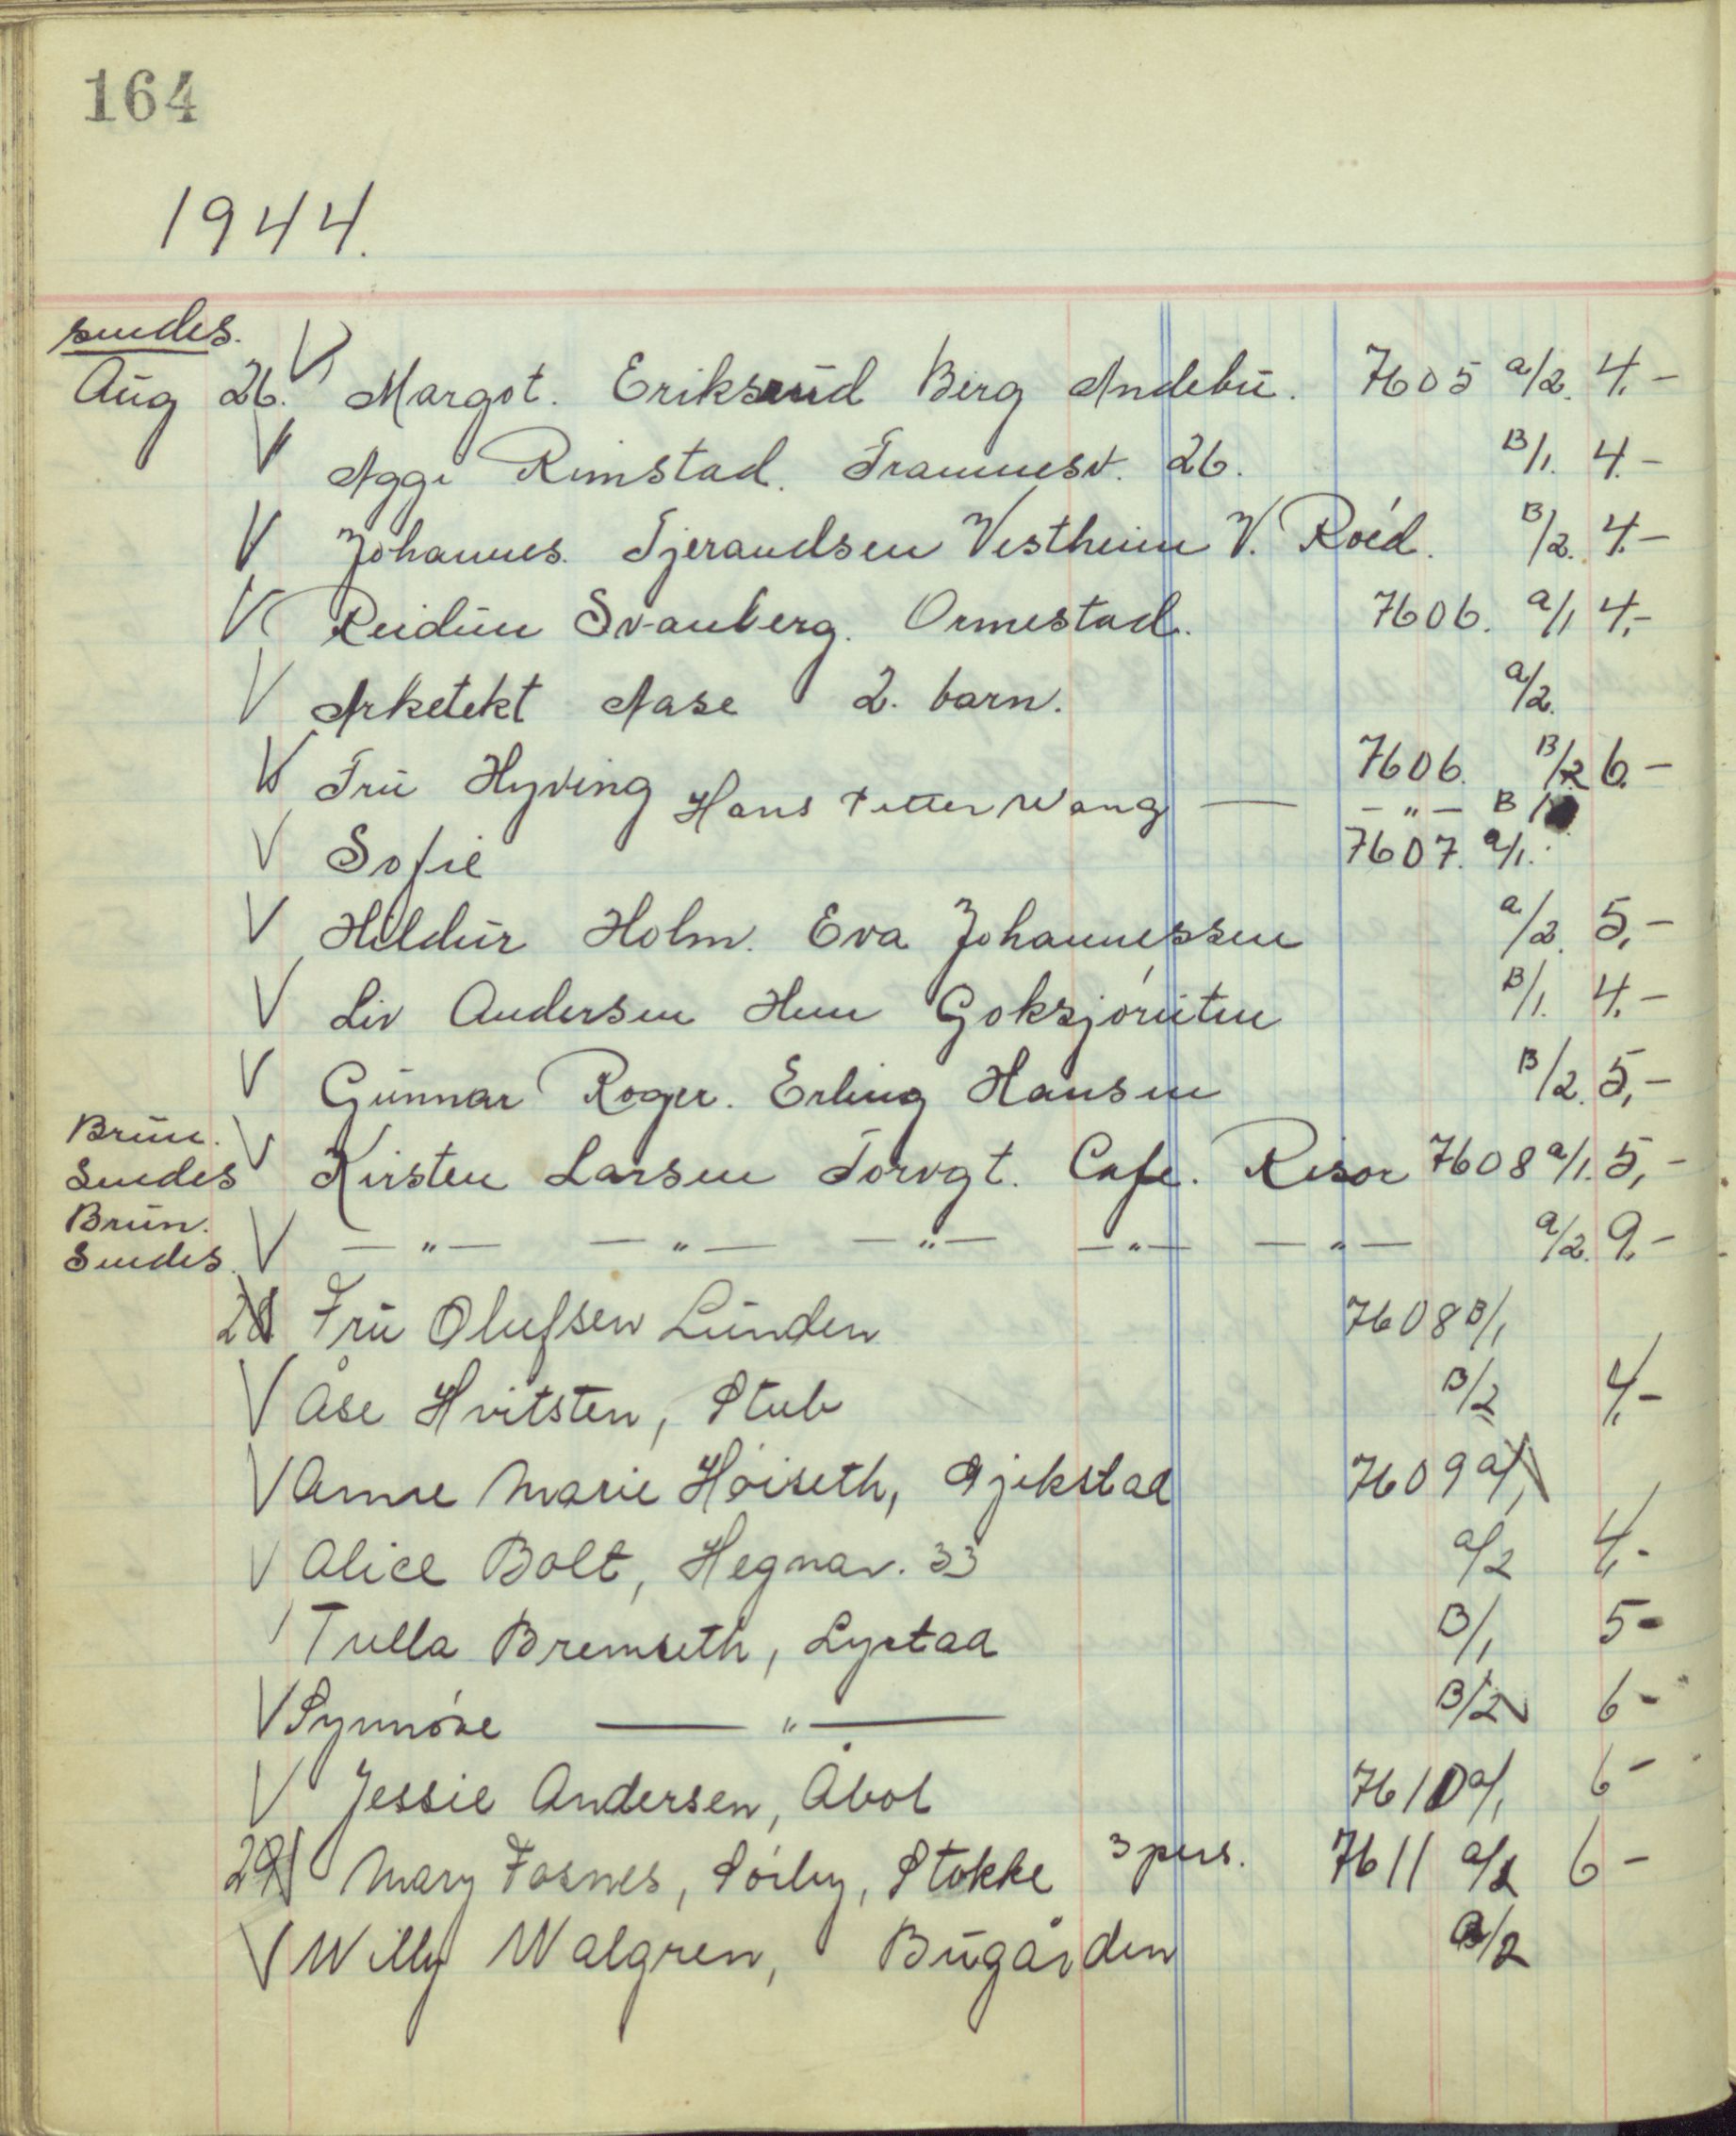 164
1944.
sendes.
Aug 26. V Margot. Eriksrud Berg Andebu. 7605 a/2. 4,-
V Aggi Rimstad. Framnesv. 26. B/1. 4.-
V Johannes. Tjerandsen Vestheim V. Róed. B/2. 4.-
V Reidun Svanberg. Ormestad. 7606. a/1 4,-
V Arketekt Aase 2. barn. a/2.
V Fru Hyving 7606. B/2 6.-
Hans Petter Wang — -"- B/
V Sofie 7607. a/1.
V Hildur Holm. Eva Johannessen a/2. 5,-
V Liv Andersen Hem Goksjóruten B/1. 4,-
V Gunnar Roger. Erling Hansen B/2. 5,-
Brun.
Sendes V Kirsten Larsen Torvgt. Cafe. Risor 7608 a/1. 5,-
Brun.
Sendes. V -"- -"- -"- -"- -"- a/2. 9.-
28 Fru Olufsen Lunden 7608 B/1
V Åse Hvitsten, Stub B/2 4,-
V Anne Marie Hóiseth, Gjekstad 7609 a/1
V Alice Bolt, Hegnav. 33 a/2 4,-
Tulla Bremseth, Lystad B/1 5-
V Synnóve —"— B/2 6-
V Jessie Andersen, Åbol 7610 a/1 6-
29 Mary Fosnes, Sórby, Stokke 3 pers. 7611 a/1 6-
V Willy Walgren, Bugården a/2